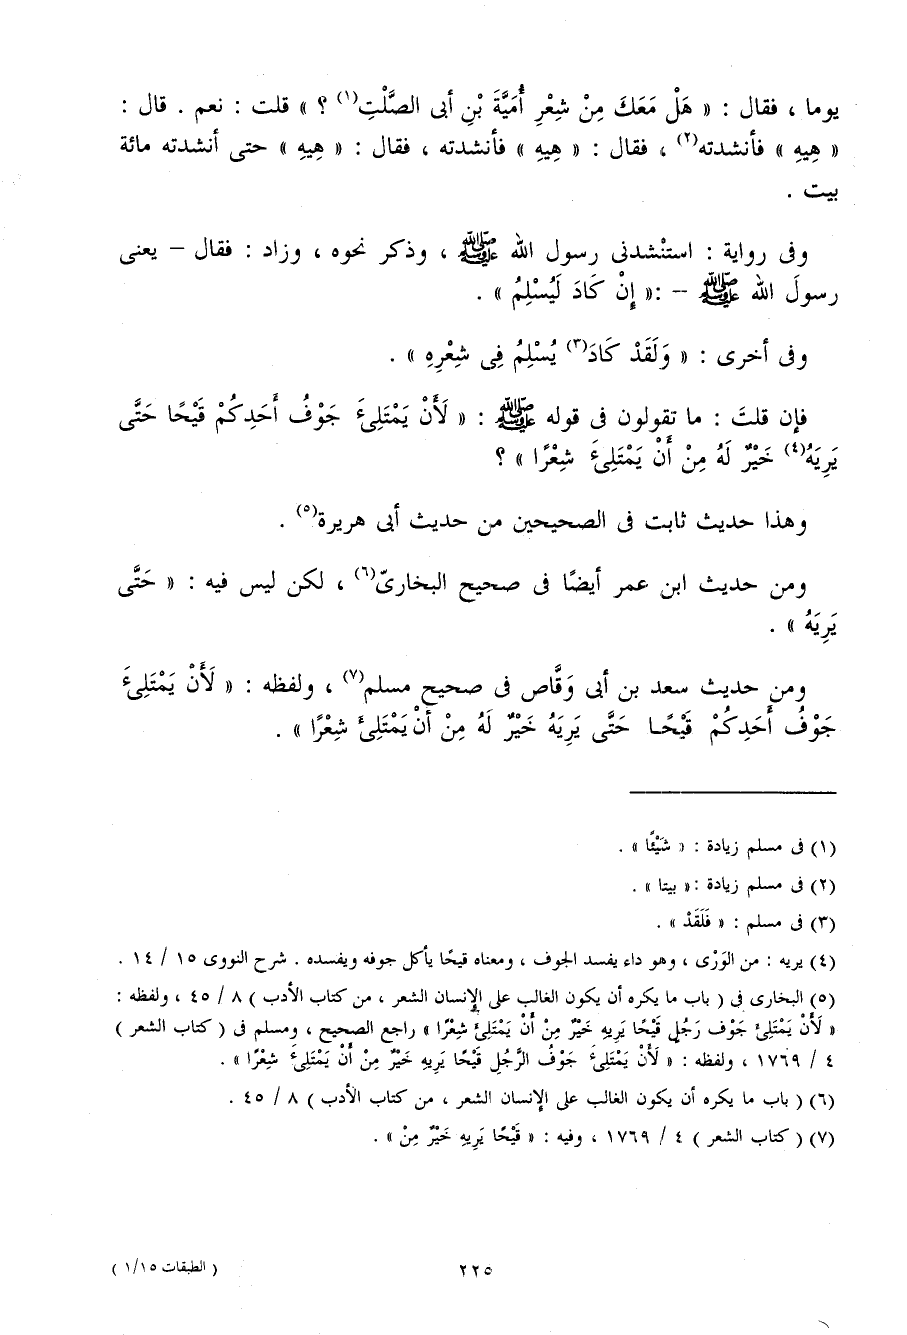 يوما ، فقال : « هَلْ مَعَكَ مِنْ شِعْرِ أُمَيَّةَ بْنِ أبى الصَّلْتِ(١) ؟ » قلت : نعم . قال :
« هِيهِ » فأنشدته(٢) ، فقال : « هِيهِ » فأنشدته ، فقال : « هِيهِ » حتى أنشدته مائة
بيت .
وفى رواية : استنْشدنى رسول الله ﷺ ، وذكر نحوه ، وزاد : فقال – يعنى
رسولَ الله ﷺ – :« إِنْ كَادَ لَيُسْلِمُ » .
وفى أخرى : « وَلَقَدْ كَادَ(٣) يُسْلِمُ فِى شِعْرِهِ » .
فإن قلتَ : ما تقولون فى قوله ﷺ : « لَأَنْ يَمْتَلِئَ جَوْفُ أَحَدِكُمْ قَيْحًا حَتَّى
يَرِيَهُ(٤) خَيْرٌ لَهُ مِنْ أَنْ يَمْتَلِئَ شِعْرًا » ؟
وهذا حديث ثابت فى الصحيحين من حديث أبى هريرة(٥) .
ومن حديث ابن عمر أيضًا فى صحيح البخارىّ(٦) ، لكن ليس فيه : « حَتَّى
يَرِيَهُ » .
ومن حديث سعد بن أبى وَقَّاص فى صحيح مسلم(٧) ، ولفظه : « لَأَنْ يَمْتَلِئَ
جَوْفُ أَحَدِكُمْ قَيْحًا حَتَّى يَرِيَهُ خَيْرٌ لَهُ مِنْ أَنْ يَمْتَلِئَ شِعْرًا » .
(١) فى مسلم زيادة : « شَيْئًا » .
(٢) فى مسلم زيادة :« بيتا » .
(٣) فى مسلم : « فَلَقَدْ » .
(٤) يريه : من الوَرْى ، وهو داء يفسد الجوف ، ومعناه قيحًا يأكل جوفه ويفسده . شرح النووى ١٥ / ١٤ .
(٥) البخارى فى ( باب ما يكره أن يكون الغالب على الإنسان الشعر ، من كتاب الأدب ) ٨ / ٤٥ ، ولفظه :
« لَأَنْ يَمْتَلِئَ جَوْفُ رَجُلٍ قَيْحًا يَرِيهِ خَيْرٌ مِنْ أَنْ يَمْتَلِئَ شِعْرًا » راجع الصحيح ، ومسلم فى ( كتاب الشعر )
٤ / ١٧٦٩ ، ولفظه : « لَأَنْ يَمْتَلِئَ جَوْفُ الرَّجُلِ قَيْحًا يَرِيهِ خَيْرٌ مِنْ أَنْ يَمْتَلِئَ شِعْرًا » .
(٦) ( باب ما يكره أن يكون الغالب على الإنسان الشعر ، من كتاب الأدب ) ٨ / ٤٥ .
(٧) ( كتاب الشعر ) ٤ / ١٧٦٩ ، وفيه : « قَيْحًا يَرِيهِ خَيْرٌ مِنْ » .
٢٢٥
( الطبقات ١/١٥ )